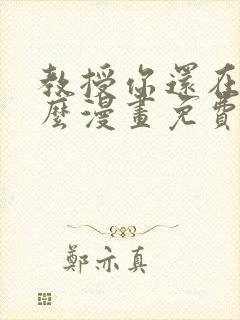 教授你還在
麼漫畫免費
鄭亦真